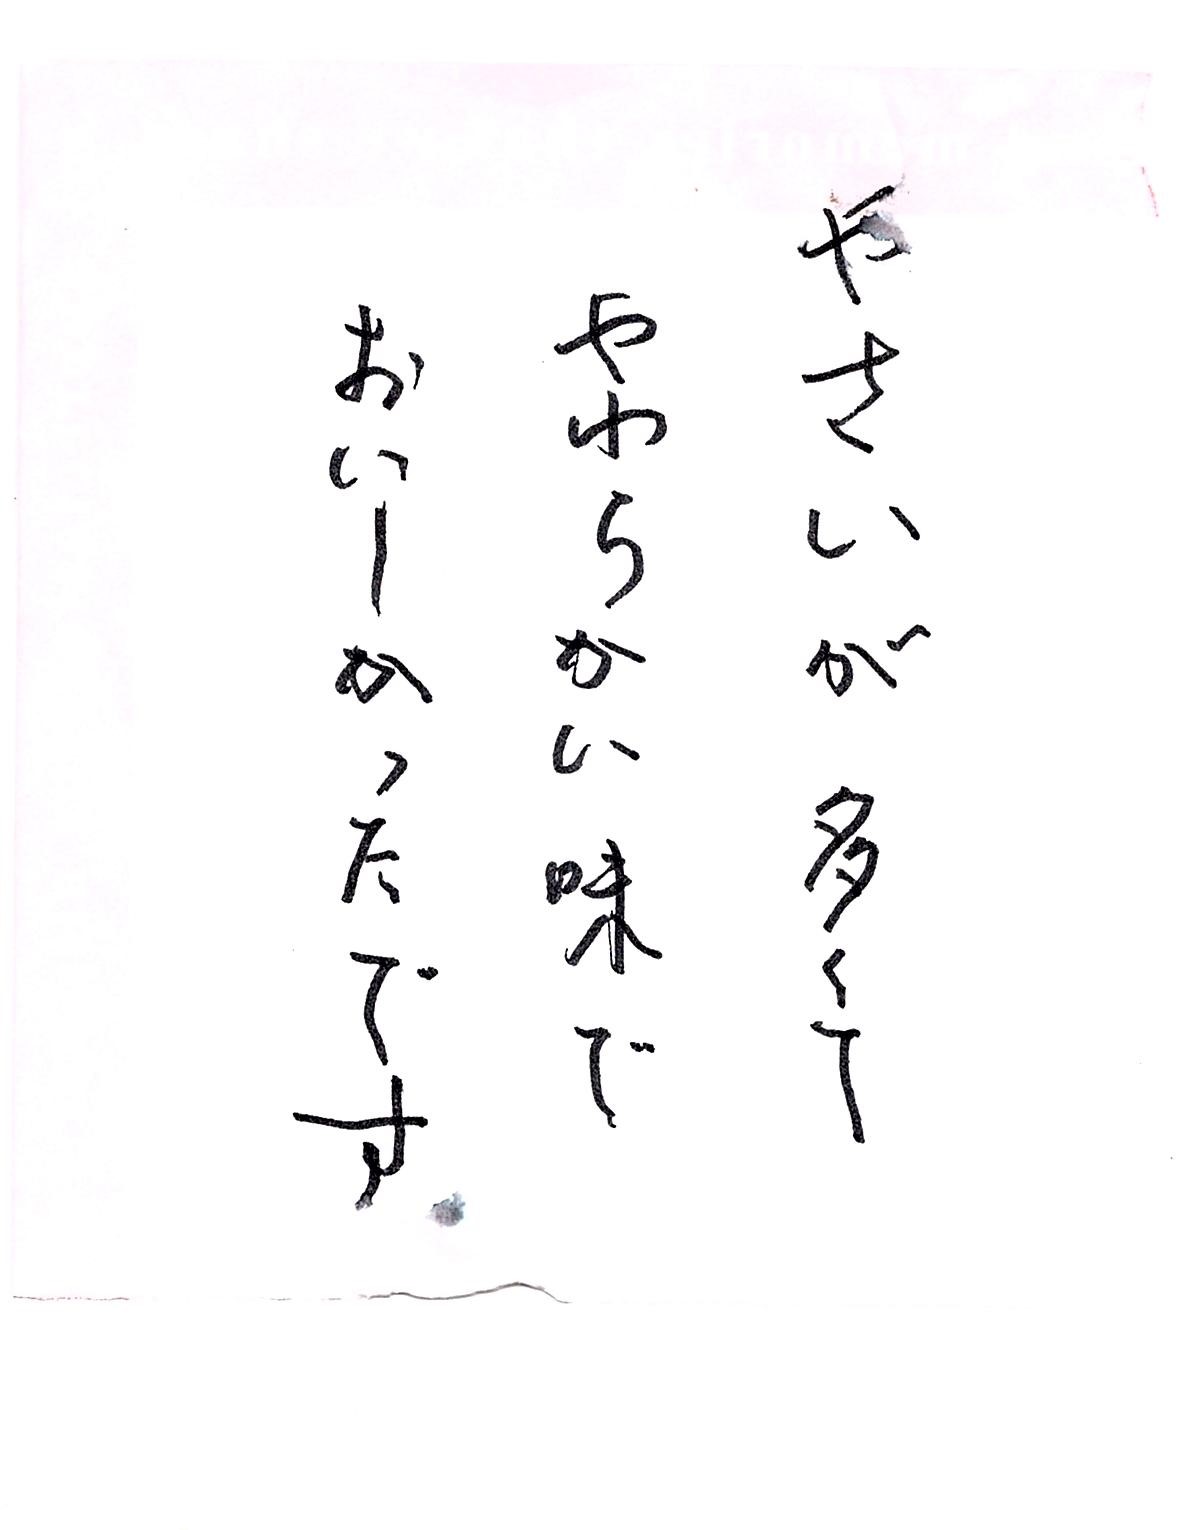 やさいが多くて
やわらかい味で
おいーかったです